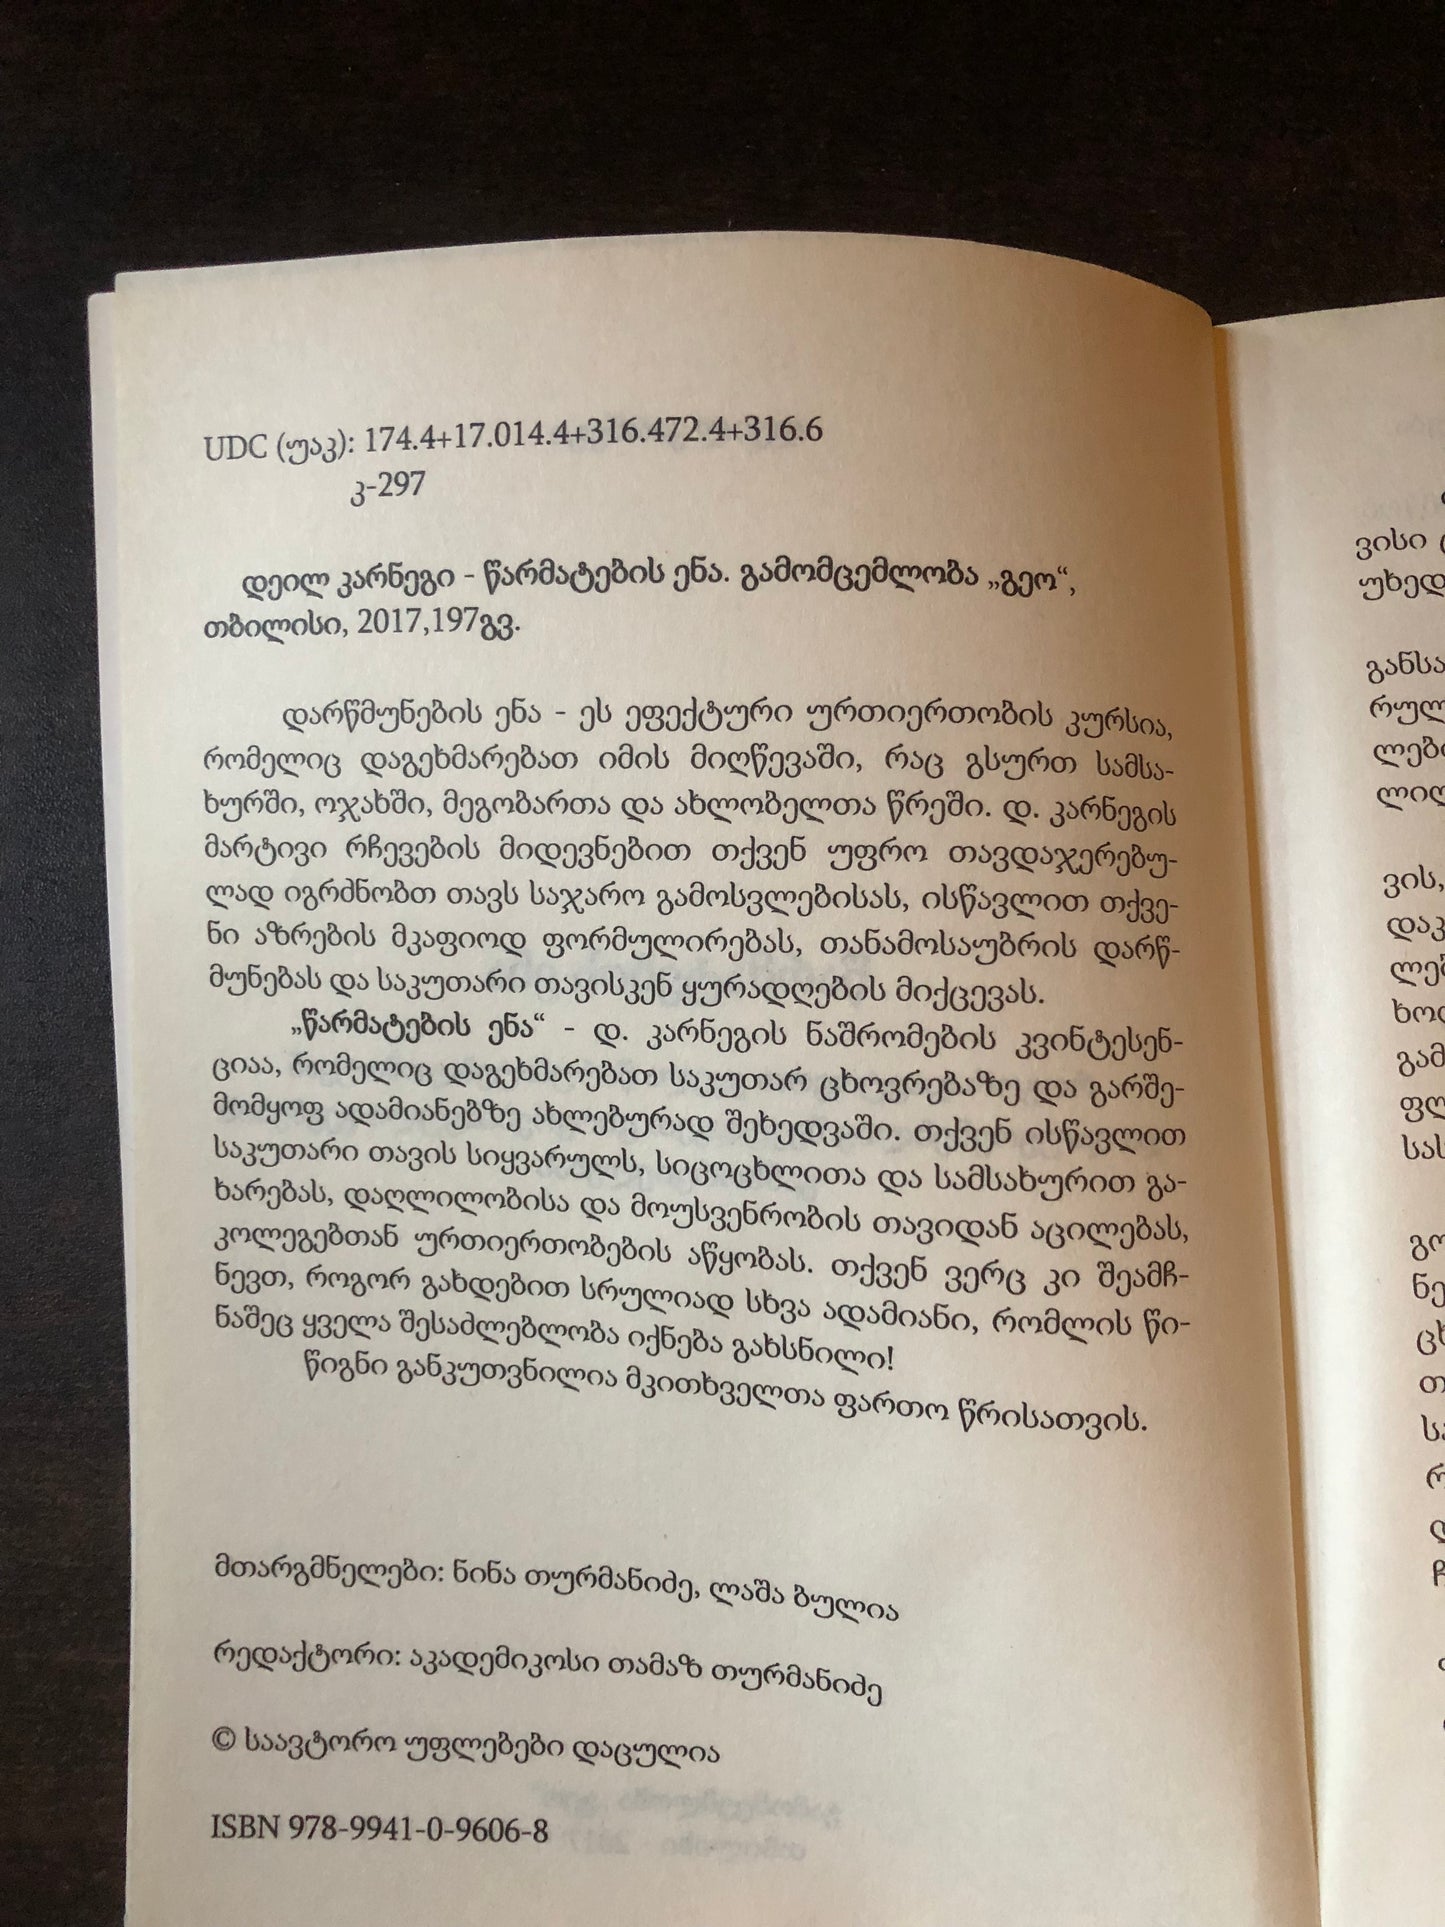 UDC (უაკ): 174.4+17.014.4+316.472.4+316.6
კ-297
დეილ კარნეგი - წარმატების ენა. გამომცემლობა „გეო“,
თბილისი, 2017,197გვ.
დარწმუნების ენა - ეს ეფექტური ურთიერთობის კურსია,
რომელიც დაგეხმარებათ იმის მიღწევაში, რაც გსურთ სამსა-
ხურში, ოჯახში, მეგობართა და ახლობელთა წრეში. დ. კარნეგის
მარტივი რჩევების მიდევნებით თქვენ უფრო თავდაჯერებუ-
ლად იგრძნობთ თავს საჯარო გამოსვლებისას, ისწავლით თქვე-
ნი აზრების მკაფიოდ ფორმულირებას, თანამოსაუბრის დარწ-
მუნებას და საკუთარი თავისკენ ყურადღების მიქცევას.
„წარმატების ენა“ - დ. კარნეგის ნაშრომების კვინტესენ-
ციაა, რომელიც დაგეხმარებათ საკუთარ ცხოვრებაზე და გარშე-
მომყოფ ადამიანებზე ახლებურად შეხედვაში. თქვენ ისწავლით
საკუთარი თავის სიყვარულს, სიცოცხლითა და სამსახურით გა-
ხარებას, დაღლილობისა და მოუსვენრობის თავიდან აცილებას,
კოლეგებთან ურთიერთობების აწყობას. თქვენ ვერც კი შეამჩ-
ნევთ, როგორ გახდებით სრულიად სხვა ადამიანი, რომლის წი-
ნაშეც ყველა შესაძლებლობა იქნება გახსნილი!
წიგნი განკუთვნილია მკითხველთა ფართო წრისათვის.
მთარგმნელები: ნინა თურმანიძე, ლაშა ბულია
რედაქტორი: აკადემიკოსი თამაზ თურმანიძე
© საავტორო უფლებები დაცულია
ISBN 978-9941-0-9606-8